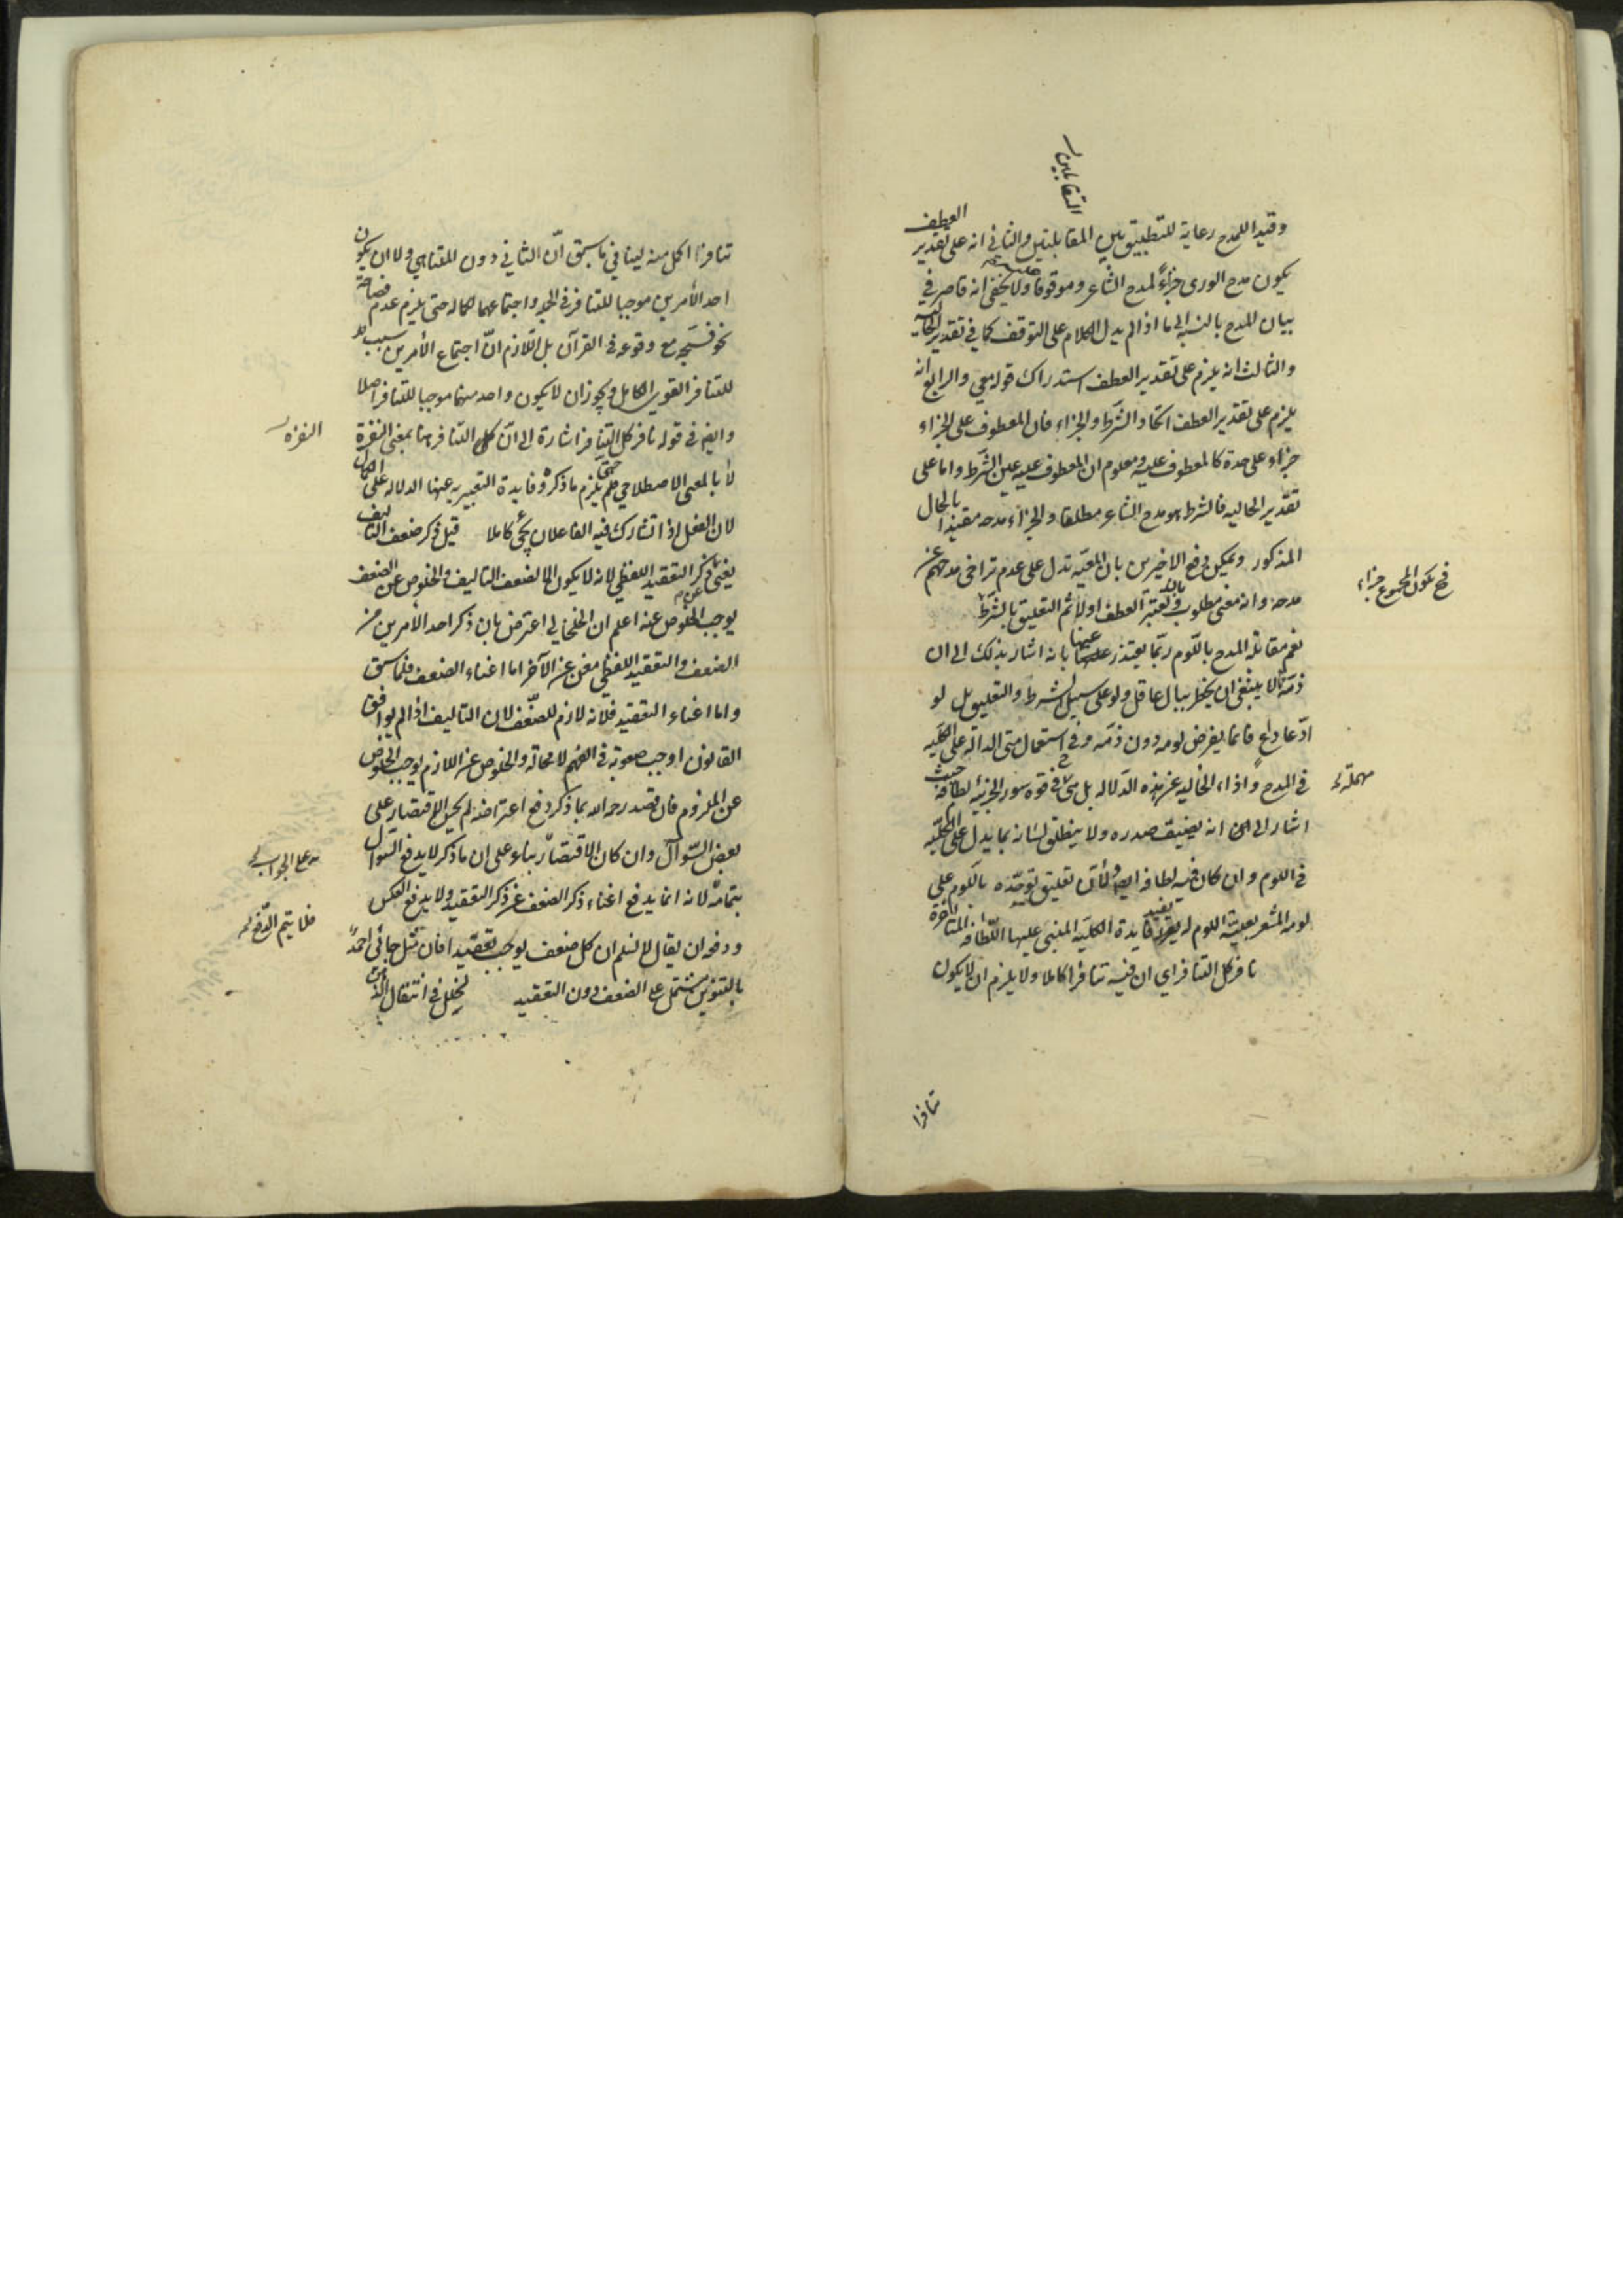 المتقابلين
وقيد اللمدح رعاية للتطبيق بين المقابلتين والثاني انه على تقدير العطف
يكون مدح الورى جزاءً لمدح الشاعر وموقوفا عليه ولا يخفى انه قاصر في
بيان المدح بالنسبة الى ما اذا لم يدل الكلام على التوقف كما في تقدير الحاليه
والثالث انه يلزم على تقدير العطف استدراك قوله معي والرابع انه
يلزم على تقدير العطف اتحاد الشرط والجزاء فان المعطوف على الجزاء
جزاء على حدة كالمعطوف عليه ومعلوم ان المعطوف عليه عين الشرط واما على
تقدير الحاليه فالشرط هو مدح الشاعر مطلقا والجزاء مدحه مقيدا بالحال
المذكور ويمكن دفع الاخيرين بان المعيّه تدل على عدم تراخي مدحهم عن
مدحه وانه معنى مطلوب وبانه يعتبر العطف اولا ثم التعليق بالشرط
فح يكون المجموع جزاء
نعم مقابلة المدح باللّوم ربّما يعتذر عنها بانه اشار بذلك الى ان
ذمّه لا ينبغي ان يخطر ببال عاقل ولو على سبيل الشرط والتعليق بل لو
ادّعا داع فانما يفرض لومه دون ذمّه وفي استعمال متى الدالة على الكليه
في المدح واذاء الخاليه عن هذه الدلاله بل هي في قوة سور الجزئية لطافة حيث
مهملة
اشار الى انه يضيق صدره ولا ينطلق لسانه بما يدل على الكليّه
في اللوم وان كان فيه لطافه ايضا ولأن تعليق توحّده باللوم على
لومه المشعر بعليّة اللوم له يفيد فايدة الكليّه المبنى عليها اللّطافه المتاخرة
نافر كل التنافر اي ان فيه تنافرا كاملا ولا يلزم ان لا يكون
تنافرا
تنافرا اكمل منه لينافي ما سبق انّ الثاني دون المتناهي ولا ان يكون
احد الأمرين موجبا للتنافر في الجمله واجتماعهما لكماله حتى يلزم عدم فصاحة
نحو فسبّحه مع وقوعه في القرآن بل اللّازم انّ اجتماع الأمرين سبب
للتنافر القوي الكامل ويجوز ان لا يكون واحد منهما موجبا للتنافر اصلا
وايضا في قوله نافر كل التنافر اشارة الى انّ كل التنافر هنا بمعنى النفرة
النفرة
لا بالمعنى الاصطلاحي فلم يلزم ما ذكره وفايدة التعبير به عنها الدلاله على الكمال
لان الفعل اذا تشارك فيه الفاعلان يجئ كاملا قيل ذكر ضعف التاليف
يغني عن ذكر التعقيد اللفظي لانه لا يكون الا لضعف التاليف والخلوص عن الضعف
يوجب الخلوص عنه اعلم ان الخلخالي اعترض بان ذكر احد الأمرين من
الضعف والتعقيد اللفظي مغن عن الآخر اما اغناء الضعف فلما سبق
واما اغناء التعقيد فلانه لازم للضّعف لان التاليف اذا لم يوافق
القانون اوجب صعوبة في الفهم لا محالة والخلوص عن اللازم يوجب الخلوص
عن الملزوم فان قصد رحمه الله بما ذكر دفع اعتراضه لم يحسن الاقتصار على
بعض السّوال وان كان الاقتصار بناء على ان ما ذكر لا يدفع السوال
بتمامه لانه انما يدفع اغناء ذكر الضعف عن ذكر التعقيد ولا يدفع العكس
فلا يتم الدّفع
ودفعه ان يقال لا نسلم ان كل ضعف يوجب تعقيدا فان مثل جائني احمدٌ
بالتنوين مشتمل على الضعف دون التعقيد لخلل في انتقال الذهن